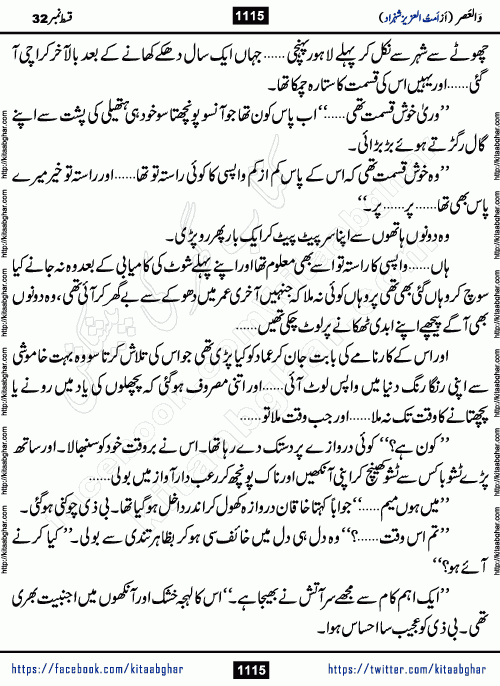 والعصر (از امت العزیز شہزاد) 1115 قسط نمبر 32
چھوٹے سے شہر سے نکل کر پہلے لاہور پہنچی ...... جہاں ایک سال دھکے کھانے کے بعد بالآخر کراچی آ
گئی ...... اور یہیں اس کی قسمت کا ستارہ چمکا تھا۔
’’وریٰ خوش قسمت تھی......‘‘ اب پاس کون تھا جو آنسو پونچھتا سو خود ہی ہتھیلی کی پشت سے اپنے
گال رگڑتے ہوئے بڑبڑائی۔
’’وہ خوش قسمت تھی کہ اس کے پاس کم از کم واپسی کا کوئی راستہ تو تھا ...... اور راستہ تو خیر میرے
پاس بھی تھا ...... پر ...... پر۔‘‘
وہ دونوں ہاتھوں سے اپنا سر پیٹ پیٹ کر ایک بار پھر رو پڑی۔
ہاں ...... واپسی کا راستہ تو اسے بھی معلوم تھا اور اپنے پہلے شوٹ کی کامیابی کے بعد وہ نہ جانے کیا
سوچ کر وہاں گئی بھی تھی پر وہاں کوئی نہ ملا کہ جنہیں آخری عمر میں دھوکے سے بے گھر کر آئی تھی، وہ دونوں
بھی آگے پیچھے اپنے ابدی ٹھکانے پر لوٹ چکی تھیں ......
اور اس کے کارنامے کی بابت جان کر عماد کو کیا پڑی تھی جو اس کی تلاش کرتا سو وہ بہت خاموشی
سے اپنی رنگا رنگ دنیا میں واپس لوٹ آئی ...... اور اتنی مصروف ہو گئی کہ پچھلوں کی یاد میں رونے یا
پچھتانے کا وقت تک نہ ملا ...... اور جب وقت ملا تو ......
’’کون ہے؟‘‘ کوئی دروازے پر دستک دے رہا تھا۔ اس نے بروقت خود کو سنبھالا۔ اور ساتھ
پڑے ٹشو باکس سے ٹشو کھینچ کر اپنی آنکھیں اور ناک پونچھ کر رعب دار آواز میں بولی ......
’’میں ہوں میم ......‘‘ جواباً کہتا خاقان دروازہ کھول کر اندر داخل ہو گیا تھا۔ بی ذی چوکنی ہو گئی۔
’’تم اس وقت ......؟‘‘ وہ دل ہی دل میں خائف سی ہو کر بظاہر تندی سے بولی۔ ’’کیا کرنے
آئے ہو؟‘‘
’’ایک اہم کام سے مجھے سر آتش نے بھیجا ہے۔‘‘ اس کا لہجہ خشک اور آنکھوں میں اجنبیت بھری
تھی۔ بی ذی کو عجیب سا احساس ہوا۔
https://facebook.com/kitaabghar 1115 https://twitter.com/kitaabghar
http://kitaabghar.com